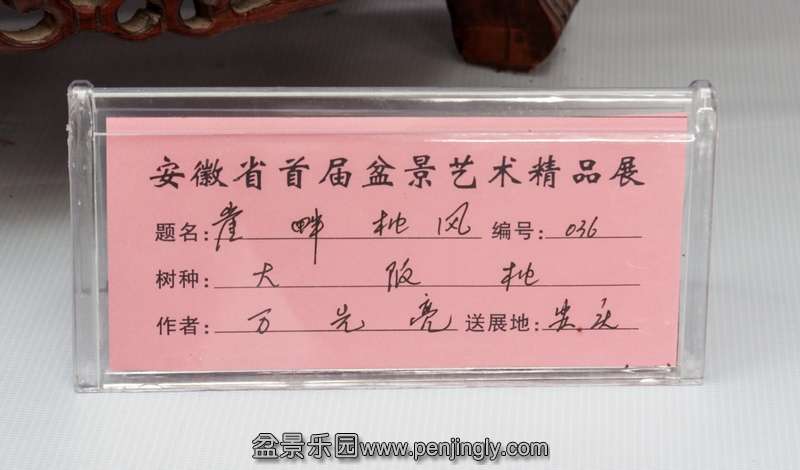 安徽省首届盆景艺术精品展
题名: 崖畔松风 编号: 036
树种: 大阪松
作者: 万光亮 送展地: 安庆
盆景乐园www.penjingly.com